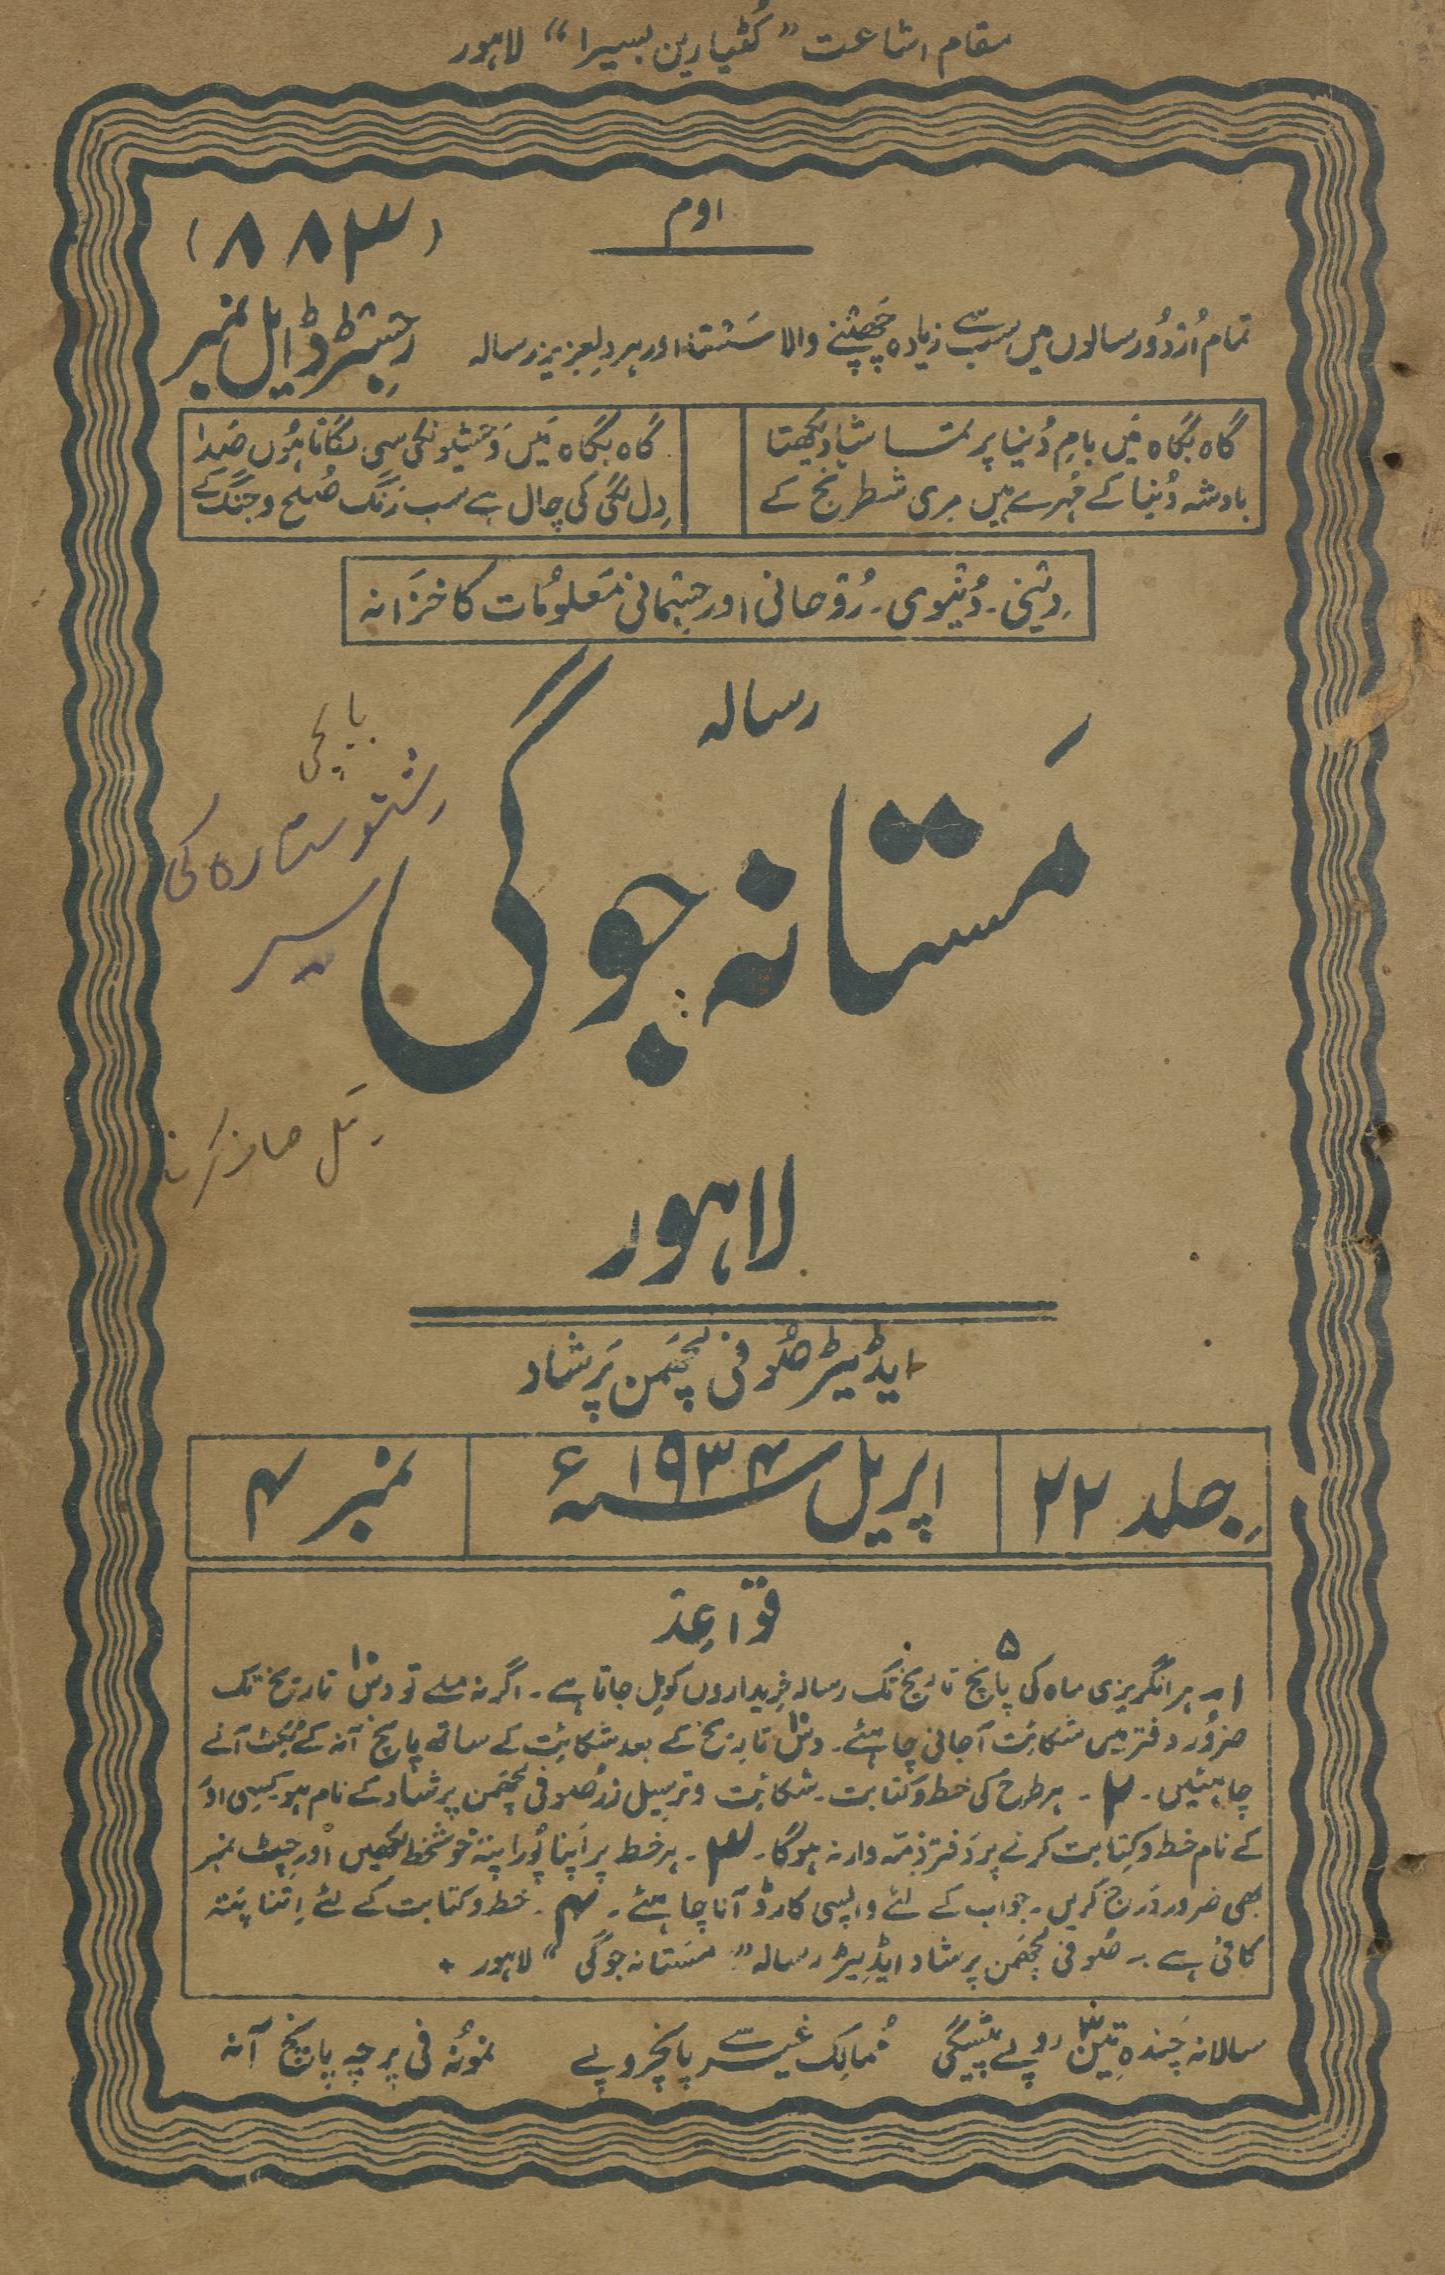 مقام اشاعت "کٹیا رین بسیرا" لاہور
اوم
(۸۸۳)
رجسٹرڈ ایل نمبر
تمام اُردُو رسالوں میں سب سے زیادہ چھپنے والا سستا اور ہردلعزیز رسالہ
گاہ بگاہ میں بامِ دُنیا پر تماشا دیکھتا
گاہ بگاہ میں وحشیوں کی سی لگاتا ہُوں صَدا
بادشہ دُنیا کے مُہرے ہیں مری شطرنج کے
دِل لگی کی چال ہے سب رنگ صُلح و جنگ کے
دِینی۔ دُنیوی۔ رُوحانی اور جِسمانی مَعلُومات کا خزَانہ
رسالہ
مَستانہ جوگی
باباجی
کی
سیر
لاہور
ایڈیٹر صُوفی لچھَمن پَرشاد
جِلد ۲۲
اپریل ۱۹۳۴ء
نمبر ۴
قواعد
۱۔ ہر انگریزی ماہ کی پانچ ۵ تاریخ تک رسالہ خریداروں کو مِل جاتا ہے۔ اگر نہ ملے تو دس ۱۰ تاریخ تک
ضرُور دفتر میں شکائت آجانی چاہئے۔ دس ۱۰ تاریخ کے بعد شکائت کے ساتھ پانچ آنہ کے ٹکٹ آنے
چاہئیں۔ ۲۔ ہر طرح کی خط و کتابت۔ شکائت و ترسیل زر صُوفی لچھَمن پرشاد کے نام ہو۔ کسی اور
کے نام خط و کتابت کرنے پر دَفتر ذمّہ دار نہ ہوگا۔ ۳۔ ہر خط پر اَپنا پُورا پتہ خوشخط لکھیں اور چِٹ نمبر
بھی ضرور دَرج کریں۔ جواب کے لئے واپسی کارڈ آنا چاہئے۔ ۴۔ خط و کتابت کے لئے اِتنا پتہ
کافی ہے :۔ صُوفی لچھَمن پرشاد ایڈیٹر رسالہ "مَستانہ جوگی" لاہور +
سالانہ چَندہ تین ۳ روپے پیشگی
مُمالک غیر سے پانچروپے
نمُونہ فی پرچہ پانچ آنہ